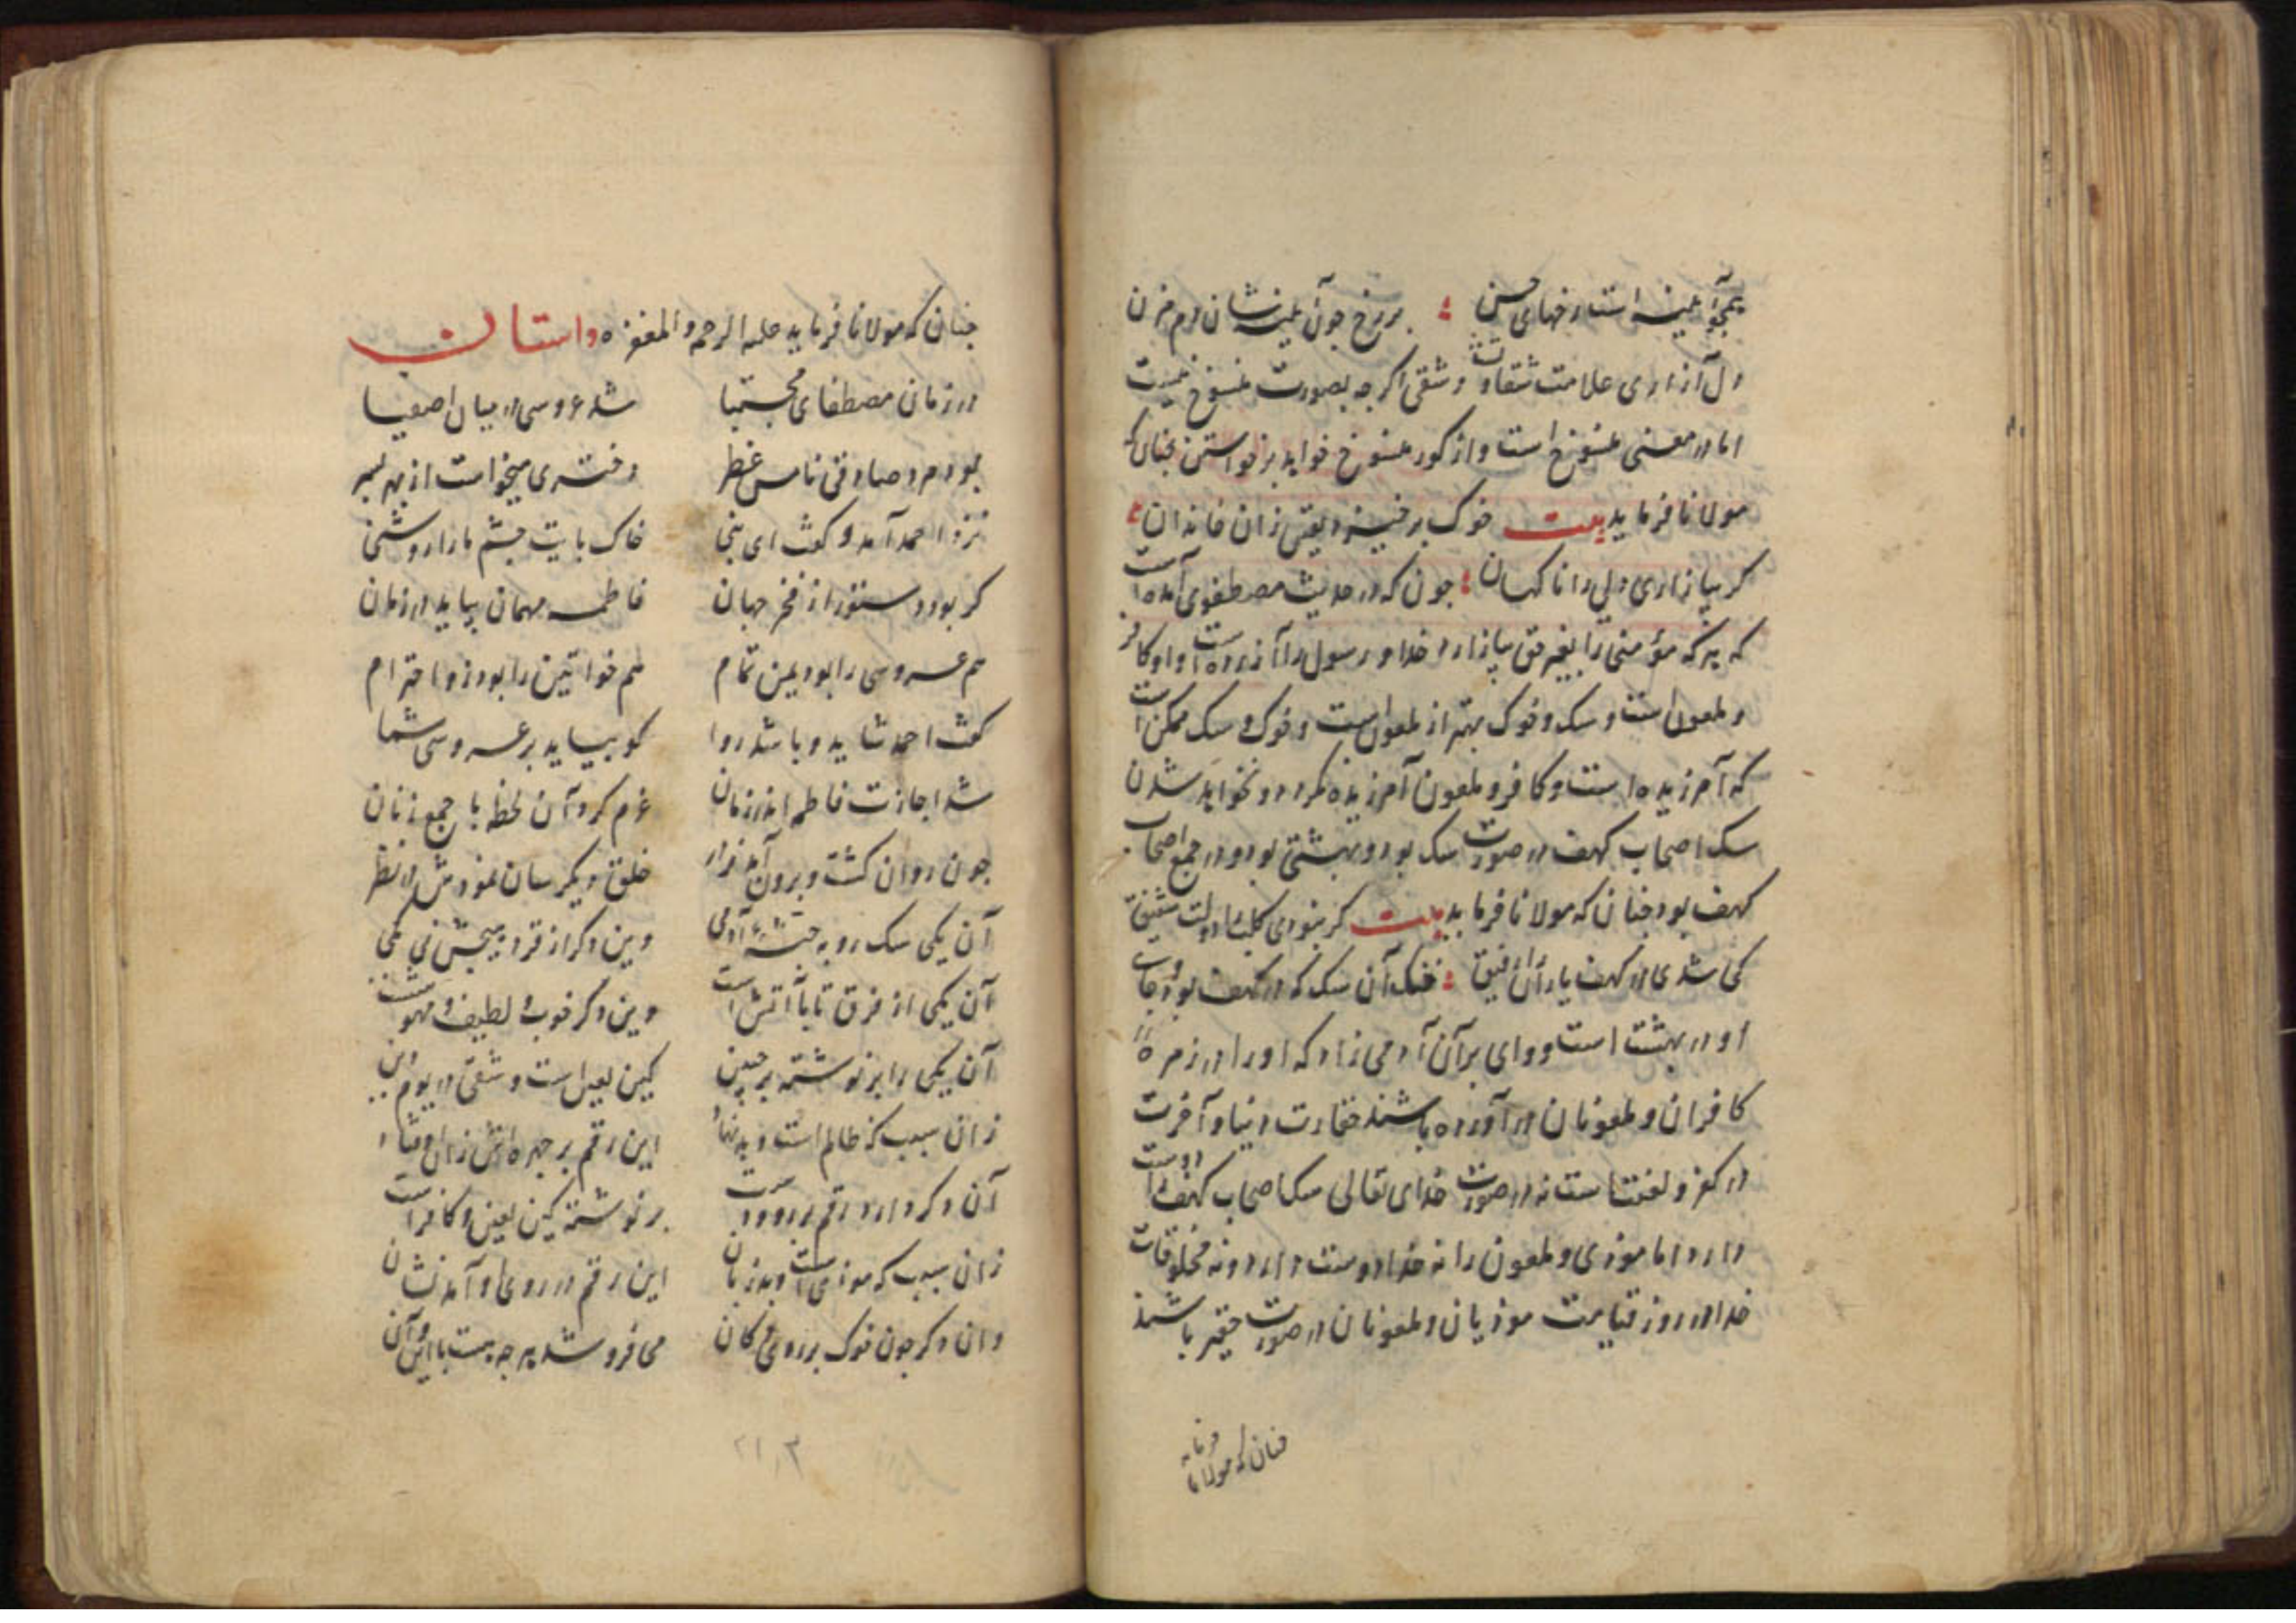 همچو آیینه است رخهای حسن ؛ بر رخ چون آینه‌شان دم مزن
دل آزاری علامت شقاوتست و شقی اگر چه بصورت منسوخ نیست
اما در معنی منسوخ است و از کور منسوخ خواهد برخواستن چنان که
مولانا فرماید بیت خوک برخیزد یقین زان خاندان ؛
کر بیازاری دلی را ناکهان ؛ چون که در حدیث مصطفوی آمده است
که هر که مؤمنی را بغیر حق بیازارد خدا و رسول را آزرده است و او کافر
و ملعون است و سک و خوک بهتر از ملعون است و خوک و سک ممکن است
که آمرزیده است و کافر و ملعون آمرزیده نکردد و نخواهد شدن
سک اصحاب کهف در صورت سک بود و بهشتی بود و در جمع اصحاب
کهف بود چنان که مولانا فرماید بیت کر نبودی کلب را دولت شفیق
کی شدی در کهف یاران را رفیق ؛ خنک آن سک که در کهف بود و جای
او در بهشت است و وای بر آن آدمی زاد که او را در زمرهٔ
کافران و ملعونان در آورده باشند حقارت دنیا و آخرت
در کفر و لعنت است نه در صورت خدای تعالی سک اصحاب کهف را دوست
دارد اما موذی و ملعون را نه خدا دوست دارد و نه مخلوقات
خدا در روز قیامت موذیان و ملعونان در صورت حقیر باشند
چنان که مولانا فرماید
چنان که مولانا فرماید علیه الرحمه و المغفره داستان
در زمان مصطفای مجتبا شد عروسی در میان اصفیا
بود مرد صادقی نامس خطر دختری میخواست از بهر پسر
نزد احمد آمد و کفت ای نبی خاک پایت چشم ما را روشنی
کر بود دستور از فخر جهان فاطمه مهمان بیاید در زمان
هم عروسی را بود یمن تمام هم خواتین را بود زو احترام
کفت احمد شاید و باشد روا کو بیاید بر عروسی شما
شد اجازت فاطمه اندر زمان عزم کرد آن لحظه با جمع زنان
چون روان کشت و برون آمد ز در خلق دیکر سان نمودش در نظر
آن یکی سک رو به جثه آدمی وین دکر از قرد هیچش نی کمی
آن یکی از فرق تا پا آتش است وین دکر خوب و لطیف و مهوش است
آن یکی را بر نوشته بر جبین کین لعین است و شقی در یوم دین
زان سبب که ظالم است و بد نهاد این رقم بر چهره‌اش زان اوفتاد
آن دکر دارد رقم بر رو درست بر نوشته کین لعین و کافر است
زان سبب که موذی است و بد زبان این رقم در روی او آمد نشان
وان دکر چون خوک بر روی دکان می فروشد هر چه هست با این و آن